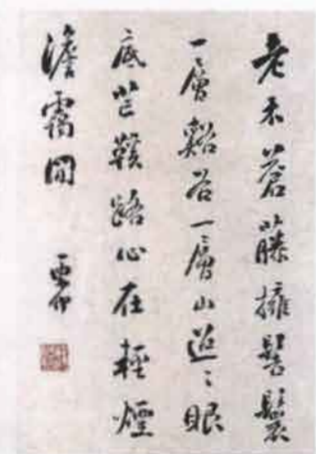 老木蒼藤擁髻鬟
一層谿谷一層山迢〻眼
底芒鞵路心在輕煙
澹靄間